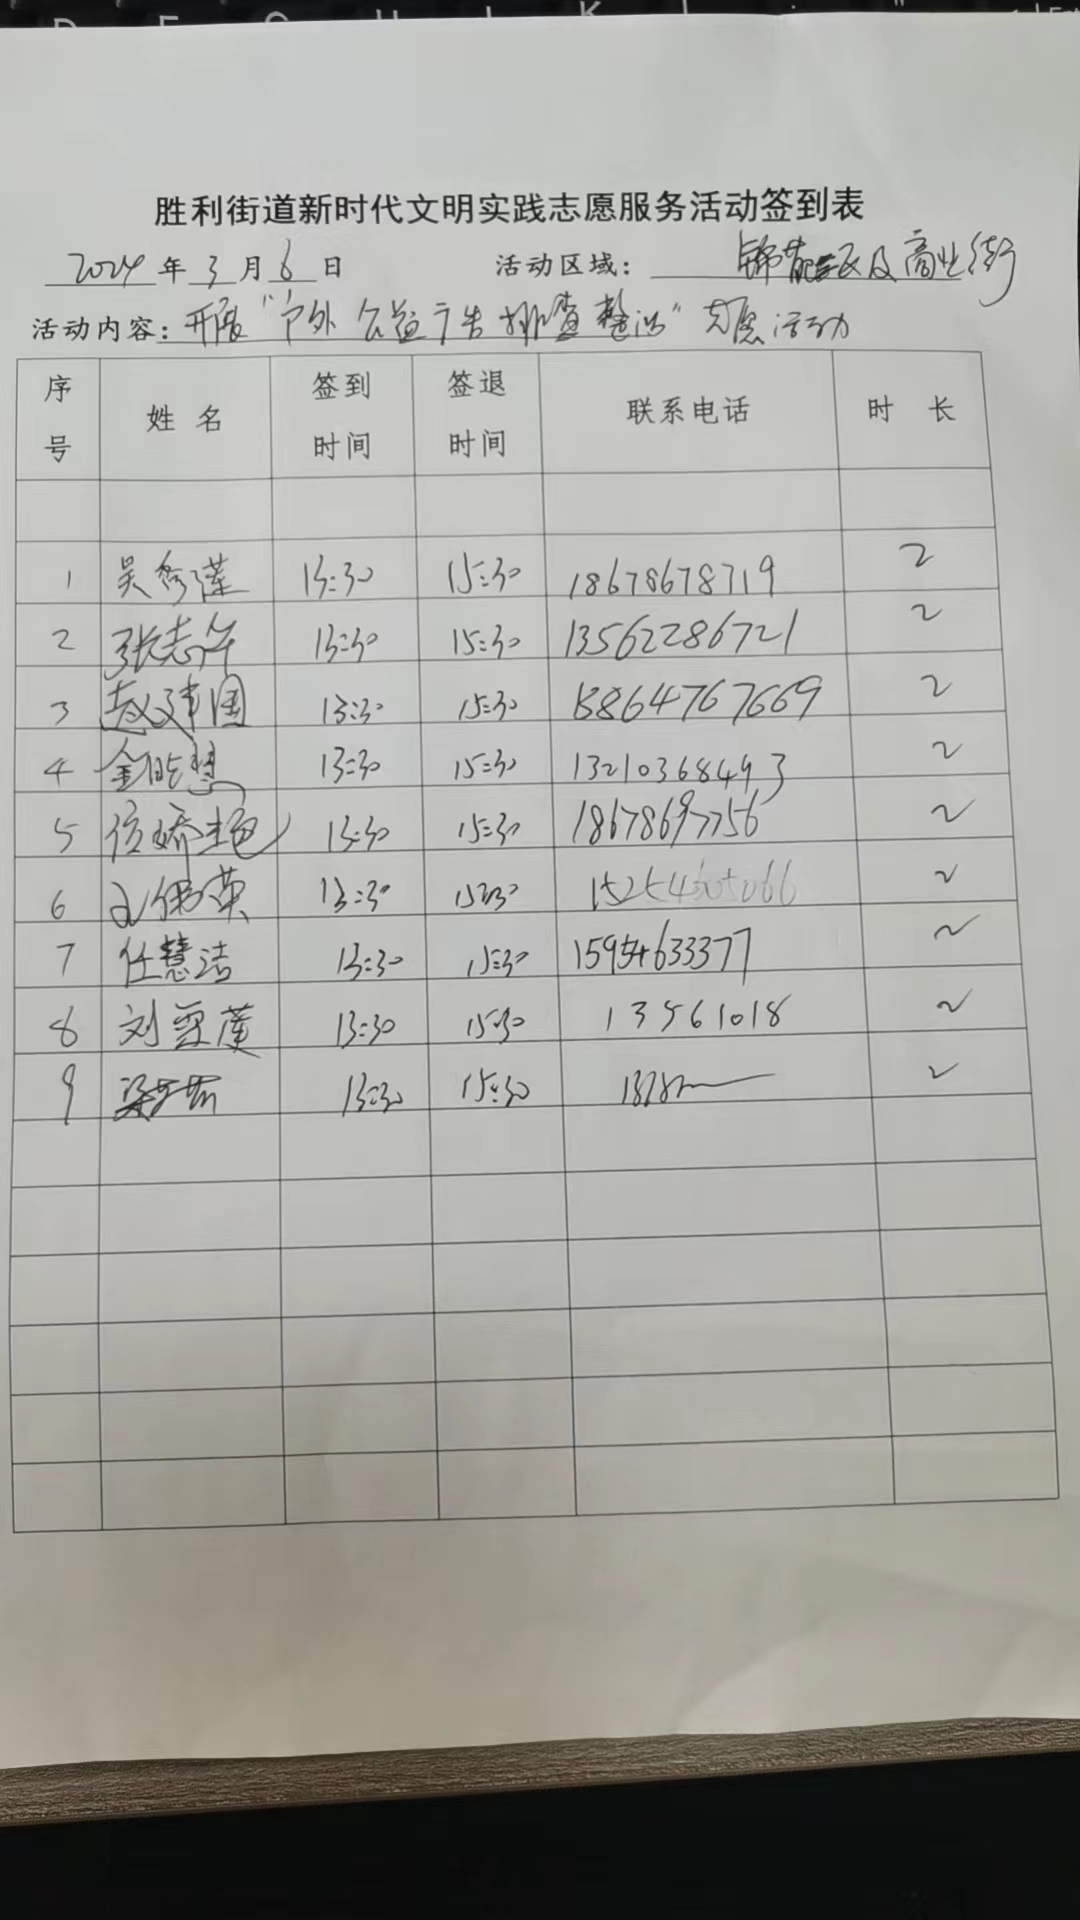 胜利街道新时代文明实践志愿服务活动签到表
2024 年 3 月 6 日 活动区域: 锦 区及商业街
活动内容: 开展“户外公益广告排查整治”志愿活动
序号 姓名 签到时间 签退时间 联系电话 时 长
1 吴秀莲 13:30 15:30 18678678719 2
2 张志 13:30 15:30 13562286721 2
3 赵建国 13:30 15:30 15864767669 2
4 金 慧 13:30 15:30 13210368493 2
5 娇艳 13:30 15:30 18678697756 2
6 伟英 13:30 15:30 15254605066 2
7 任慧洁 13:30 15:30 15954633377 2
8 刘雪莲 13:30 15:30 13561018 2
9 梁 13:30 15:30 2